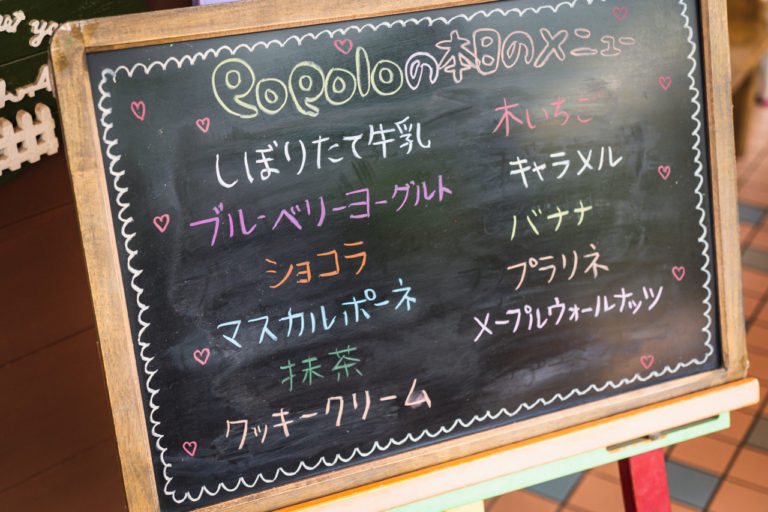 POPOLOの本日のメニュー
しぼりたて牛乳
ブルーベリーヨーグルト
ショコラ
マスカルポーネ
抹茶
クッキークリーム
木いちご
キャラメル
バナナ
プラリネ
メープルウォールナッツ